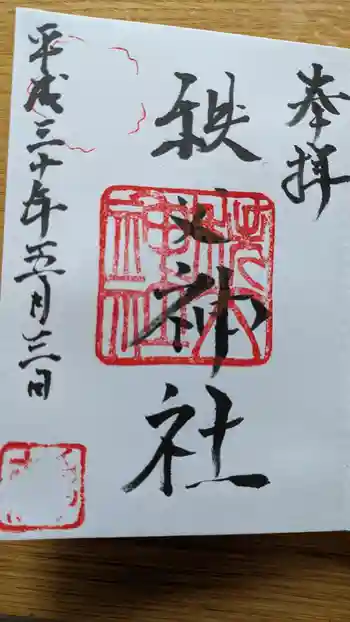 奉拝
秩父神社
平成三十年五月三日